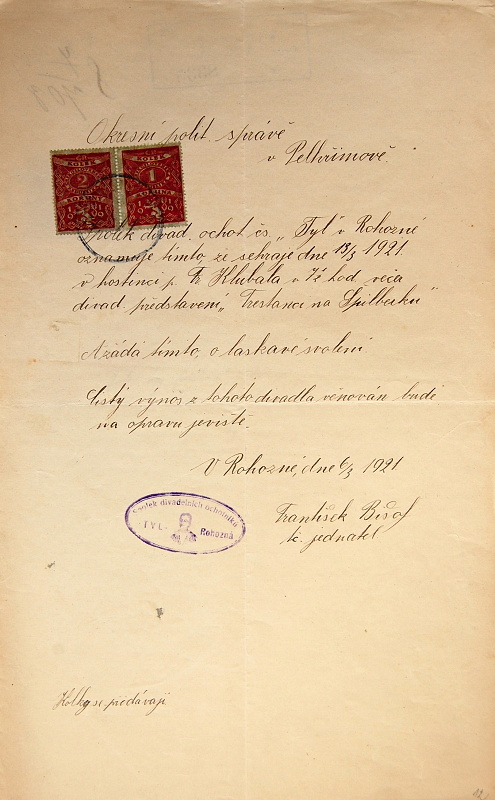 Okresní polit. správě
v Pelhřimově.
KOLEK
2
KORUNY
KOLEK
1
KORUNA
Spolek divad. ochot. čs. „Tyl" v Rohozné
oznamuje tímto, že sehraje dne 13/3 1921.
v hostinci p. Fr. Hlubala v 7½ hod. večer
divad. představení „Trestanci na Špilberku"
A žádá tímto, o laskavé svolení.
Čistý výnos z tohoto divadla věnován bude
na opravu jeviště.
V Rohozné, dne 6/3 1921
Spolek divadelních ochotníků
TYL
Rohozná
František
tč. jednatel
Kolky se předávají